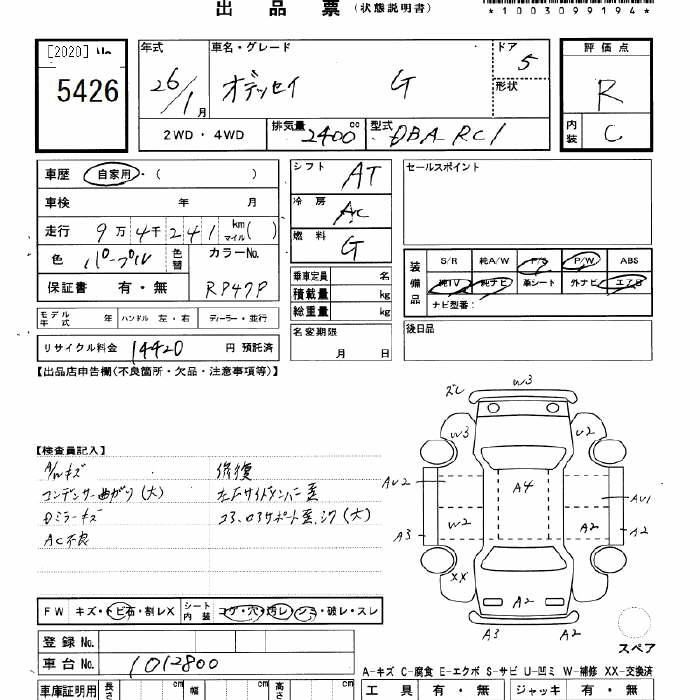 出品票 (状態説明書)
*1003099194*
[2020] No
5426
年式 26/1月
車名・グレード オデッセイ G
ドア 5
形状
評価点 R
内装 C
2WD・4WD
排気量 2400 cc
型式 DBA RC1
車歴 自家用・( )
車検 年 月
走行 9万4千241 km マイル ( )
色 パープル 色替
カラーNo. RP47P
保証書 有・無
シフト AT
冷房 AC
燃料 G
乗車定員 名
積載量 kg
総重量 kg
モデル年式 年 ハンドル 左・右 ディーラー・並行
名変期限 月 日
リサイクル料金 14420 円 預託済
セールスポイント
装備品 S/R 純A/W P/S P/W ABS
純TV 純ナビ 革シート 外ナビ エアB
ナビ型番:
後日品
【出品店申告欄(不良箇所・欠品・注意事項等)】
【検査員記入】
A/Wキズ
コンデンサー曲がり(大)
Dミラーキズ
AC不良
修復
左Fサイドメンバー歪
コアロアサポート歪、シワ(大)
ズレ
W3
W3
U2
AU2
A4
AU1
W2
A2
A3
A2
XX
A2
A3
A2
スペア
FW キズ・トビ石・割レX
シート内装 コゲ・穴・汚レ・シミ・破レ・スレ
登録No.
車台No. 1012800
A-キズ C-腐食 E-エクボ S-サビ U-凹ミ W-補修 XX-交換済
車庫証明用 長さ cm 幅 cm 高さ cm
工具 有・無 ジャッキ 有・無